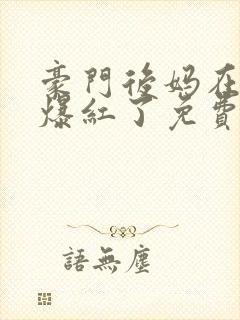 豪門後媽在
爆紅了免費
語無塵